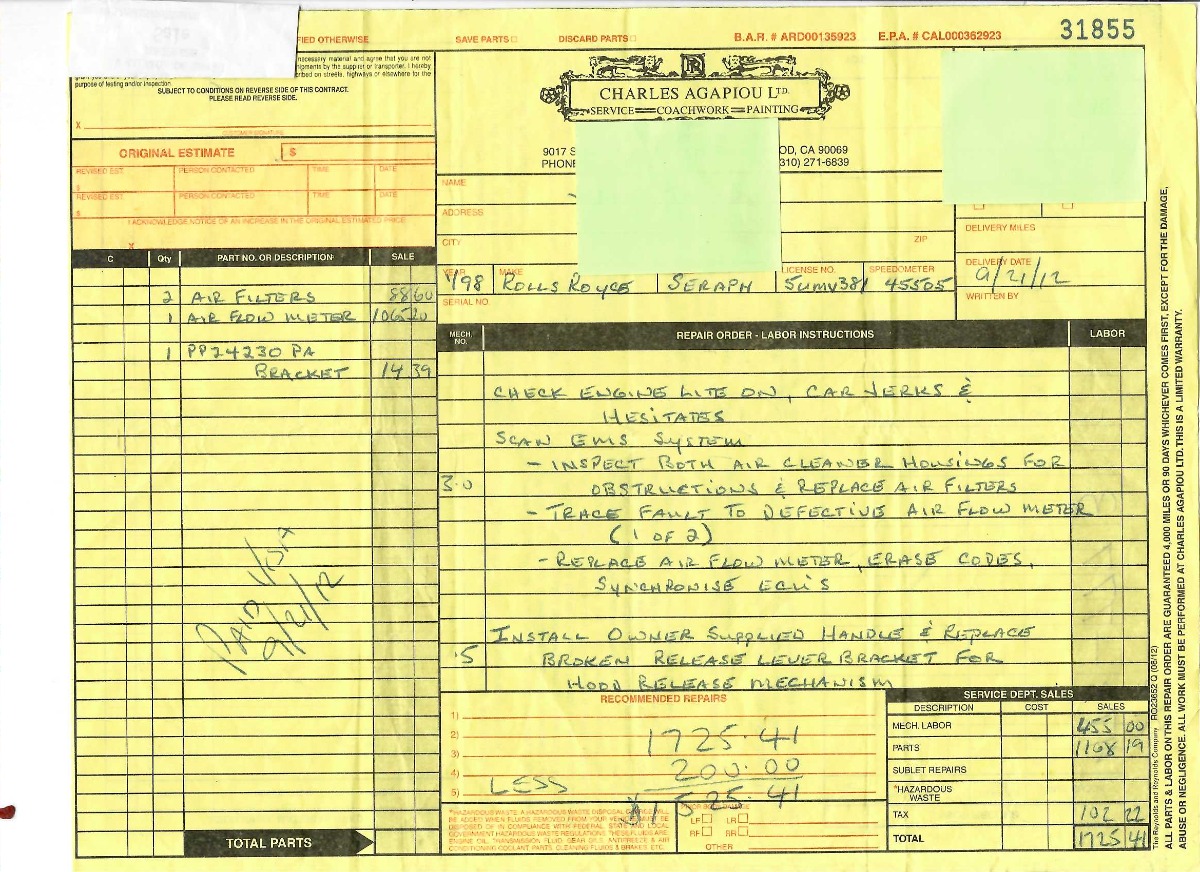 FIED OTHERWISE
SAVE PARTS
DISCARD PARTS
B.A.R. # ARD00135923
E.P.A. # CAL000362923
31855
necessary material and agree that you are not
cribed on streets, highways or elsewhere for the
purpose of testing and/or inspection.
SUBJECT TO CONDITIONS ON REVERSE SIDE OF THIS CONTRACT.
PLEASE READ REVERSE SIDE.
X
CUSTOMER SIGNATURE
CHARLES AGAPIOU LTD.
SERVICE COACHWORK PAINTING
9017 S OD, CA 90069
PHONE 310) 271-6839
ORIGINAL ESTIMATE $
REVISED EST. PERSON CONTACTED TIME DATE
$
REVISED EST. PERSON CONTACTED TIME DATE
$
I ACKNOWLEDGE NOTICE OF AN INCREASE IN THE ORIGINAL ESTIMATED PRICE
X
NAME
ADDRESS
CITY ZIP
DELIVERY MILES
DELIVERY DATE
9/21/12
WRITTEN BY
YEAR MAKE LICENSE NO. SPEEDOMETER
1/98 ROLLS ROYCE SERAPH 5UMV381 45505
SERIAL NO.
C Qty PART NO. OR DESCRIPTION SALE
2 AIR FILTERS 88 60
1 AIR FLOW METER 1065 20
1 PP24230 PA
BRACKET 14 39
PAID VISA
9/21/12
TOTAL PARTS
MECH. NO. REPAIR ORDER - LABOR INSTRUCTIONS LABOR
CHECK ENGINE LITE ON, CAR JERKS &
HESITATES
SCAN EMS SYSTEM
- INSPECT BOTH AIR CLEANER HOUSINGS FOR
3.0 OBSTRUCTIONS & REPLACE AIR FILTERS
- TRACE FAULT TO DEFECTIVE AIR FLOW METER
(1 OF 2)
- REPLACE AIR FLOW METER, ERASE CODES,
SYNCHRONISE ECU'S
INSTALL OWNER SUPPLIED HANDLE & REPLACE
.5 BROKEN RELEASE LEVER BRACKET FOR
HOOD RELEASE MECHANISM
RECOMMENDED REPAIRS
1)
2) 1725.41
3) 200.00
4) LESS
5) $1525.41
*HAZARDOUS WASTE: A HAZARDOUS WASTE DISPOSAL CHARGE WILL
BE ADDED WHEN FLUIDS REMOVED FROM YOUR VEHICLE MUST BE
DISPOSED OF IN COMPLIANCE WITH FEDERAL, STATE AND LOCAL
GOVERNMENT HAZARDOUS WASTE REGULATIONS. THESE FLUIDS ARE:
ENGINE OIL, TRANSMISSION FLUID, GEAR OILS, ANTIFREEZE & AIR
CONDITIONING COOLANT PARTS, CLEANING FLUIDS & BRAKES, ETC.
LF LR
RF RR
OTHER
SERVICE DEPT. SALES
DESCRIPTION COST SALES
MECH. LABOR 455 00
PARTS 1168 19
SUBLET REPAIRS
*HAZARDOUS WASTE
TAX 102 22
TOTAL 1725 41
The Reynolds and Reynolds Company RO23652 Q (08/12)
ALL PARTS & LABOR ON THIS REPAIR ORDER ARE GUARANTEED 4,000 MILES OR 90 DAYS WHICHEVER COMES FIRST, EXCEPT FOR THE DAMAGE,
ABUSE OR NEGLIGENCE. ALL WORK MUST BE PERFORMED AT CHARLES AGAPIOU LTD. THIS IS A LIMITED WARRANTY.